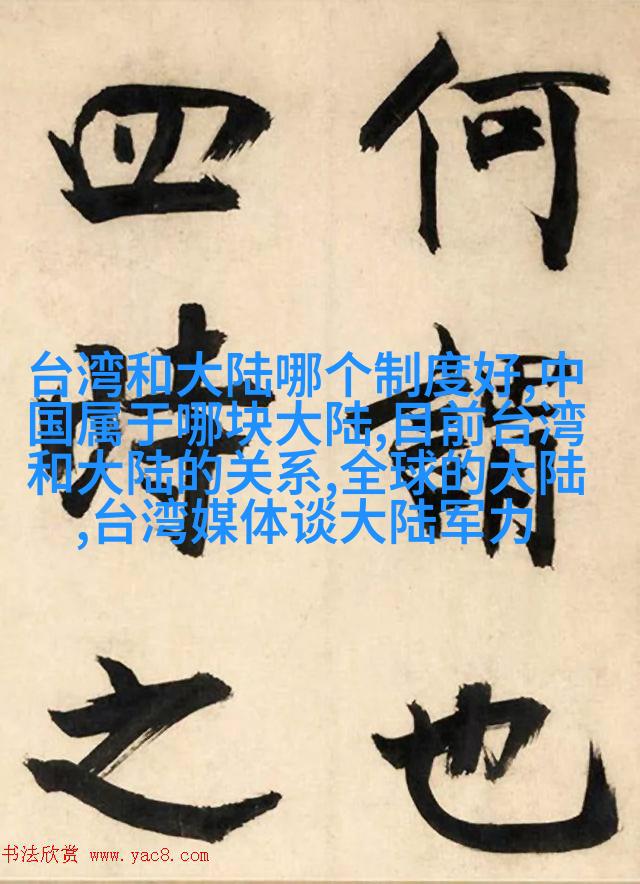 何謂也
四時之
台湾和大陆哪个制度好,中
国属于哪块大陆,目前台湾
和大陆的关系,全球的大陆
,台湾媒体谈大陆军力
书法欣赏 www.yac8.com